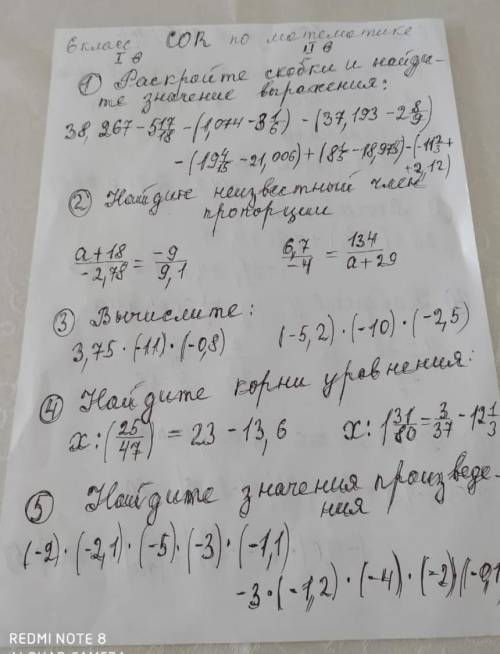 6 класс. СОR по математике
I в II в
① Раскройте скобки и найди-
те значение выражения:
38,267 - 5 17/18 - (1,074 - 3 1/6) - (37,193 - 2 8/9)
- (19 4/15 - 21,006) + (8 1/5 - 18,973) - (-11 2/3 +
+ 2,12)
② Найдите неизвестный член
пропорции
(a+18)/(-2,78) = (-9)/(9,1) (6,7)/(-4) = (134)/(a+29)
③ Вычислите:
3,75 · (-11) · (-0,8) (-5,2) · (-10) · (-2,5)
④ Найдите корни уравнения:
x : (25/47) = 23 - 13,6 x : 1 31/80 = 3/37 - 12 1/3
⑤ Найдите значения произведе-
ния
(-2) · (-2,1) · (-5) · (-3) · (-1,1).
-3 · (-1,2) · (-4) · (-2) (-0,1
REDMI NOTE 8